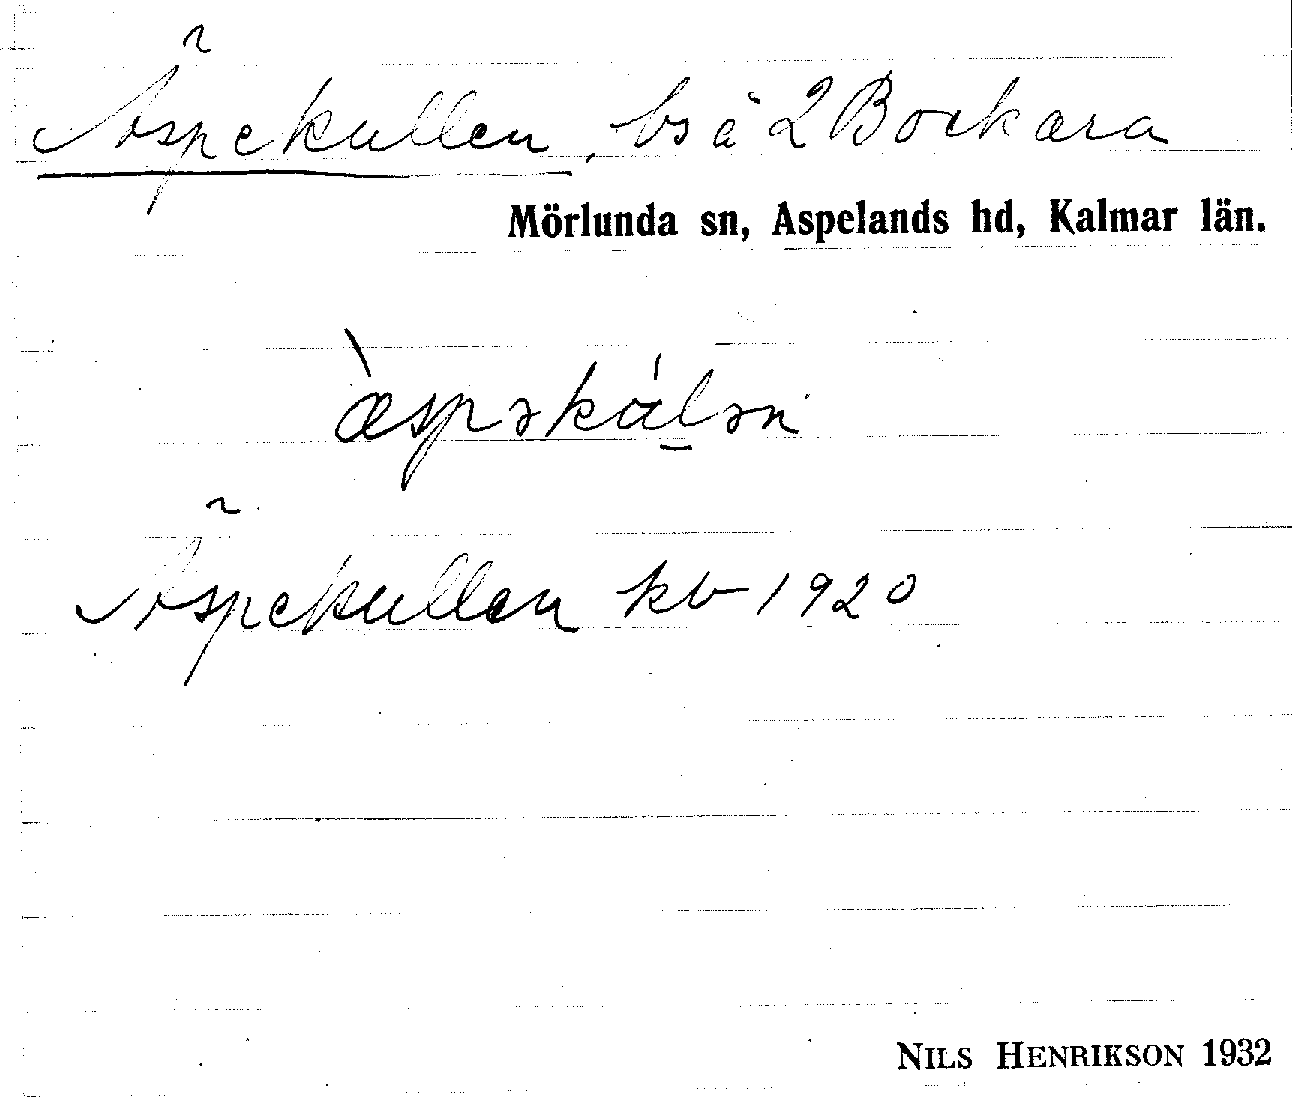 Äspekullen, bs å 2 Bockara
Mörlunda sn, Aspelands hd, Kalmar län.
æ̀spəkálən
Äspekullen kb 1920
NILS HENRIKSON 1932